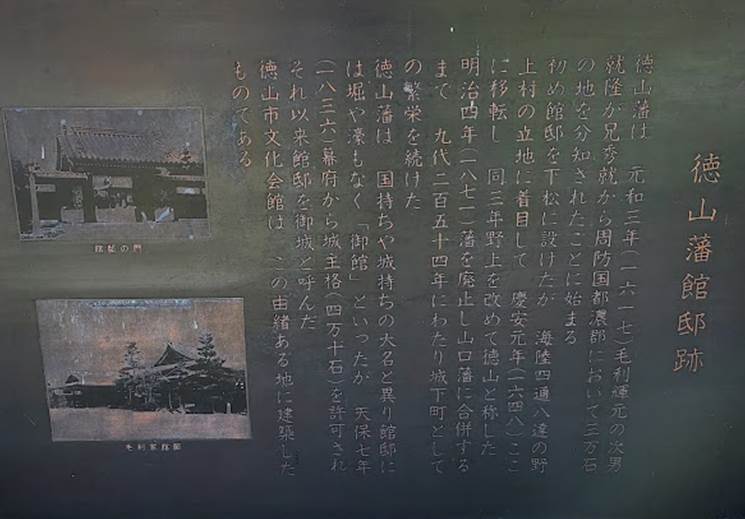 徳山藩館邸跡
徳山藩は 元和三年(一六一七)毛利輝元の次男
就隆が兄秀就から周防国都濃郡において三万石
の地を分知されたことに始まる
初め館邸を下松に設けたが 海陸四通八達の野
上村の立地に着目して 慶安元年(一六四八)ここ
に移転し 同三年野上を改めて徳山と称した
明治四年(一八七一)藩を廃止し山口藩に合併する
まで 九代二百五十四年にわたり城下町として
の繁栄を続けた
徳山藩は 国持ちや城持ちの大名と異り館邸に
は堀や濠もなく「御館」といったが 天保七年
(一八三六)幕府から城主格(四万十石)を許可され
それ以来館邸を御城と呼んだ
徳山市文化会館は この由緒ある地に建築した
ものである
館邸の門
毛利家館邸